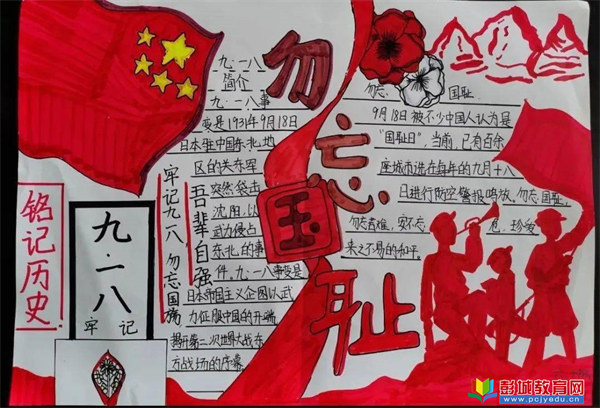 勿忘国耻
九·一八
简介
九·一八事
变是1931年9月18日
日本驻中国东北地
区的关东军
突然袭击
沈阳,以
武力侵占
东北的事
件。九一八事变是
日本帝国主义企图以武
力征服中国的开端
揭开第二次世界大战东
方战场的序幕
牢记九一八,勿忘国殇
吾辈自强
铭记历史
九·一八
牢记
勿忘, 国耻
9月18被不少中国人认为是
“国耻日”,当前,已有百余
座城市选在每年的九月十八
日进行防空警报鸣放。勿忘国耻,
勿忘苦难,安不忘 危,珍爱
来之不易的和平。
彭城教育网
www.pcjyedu.cn